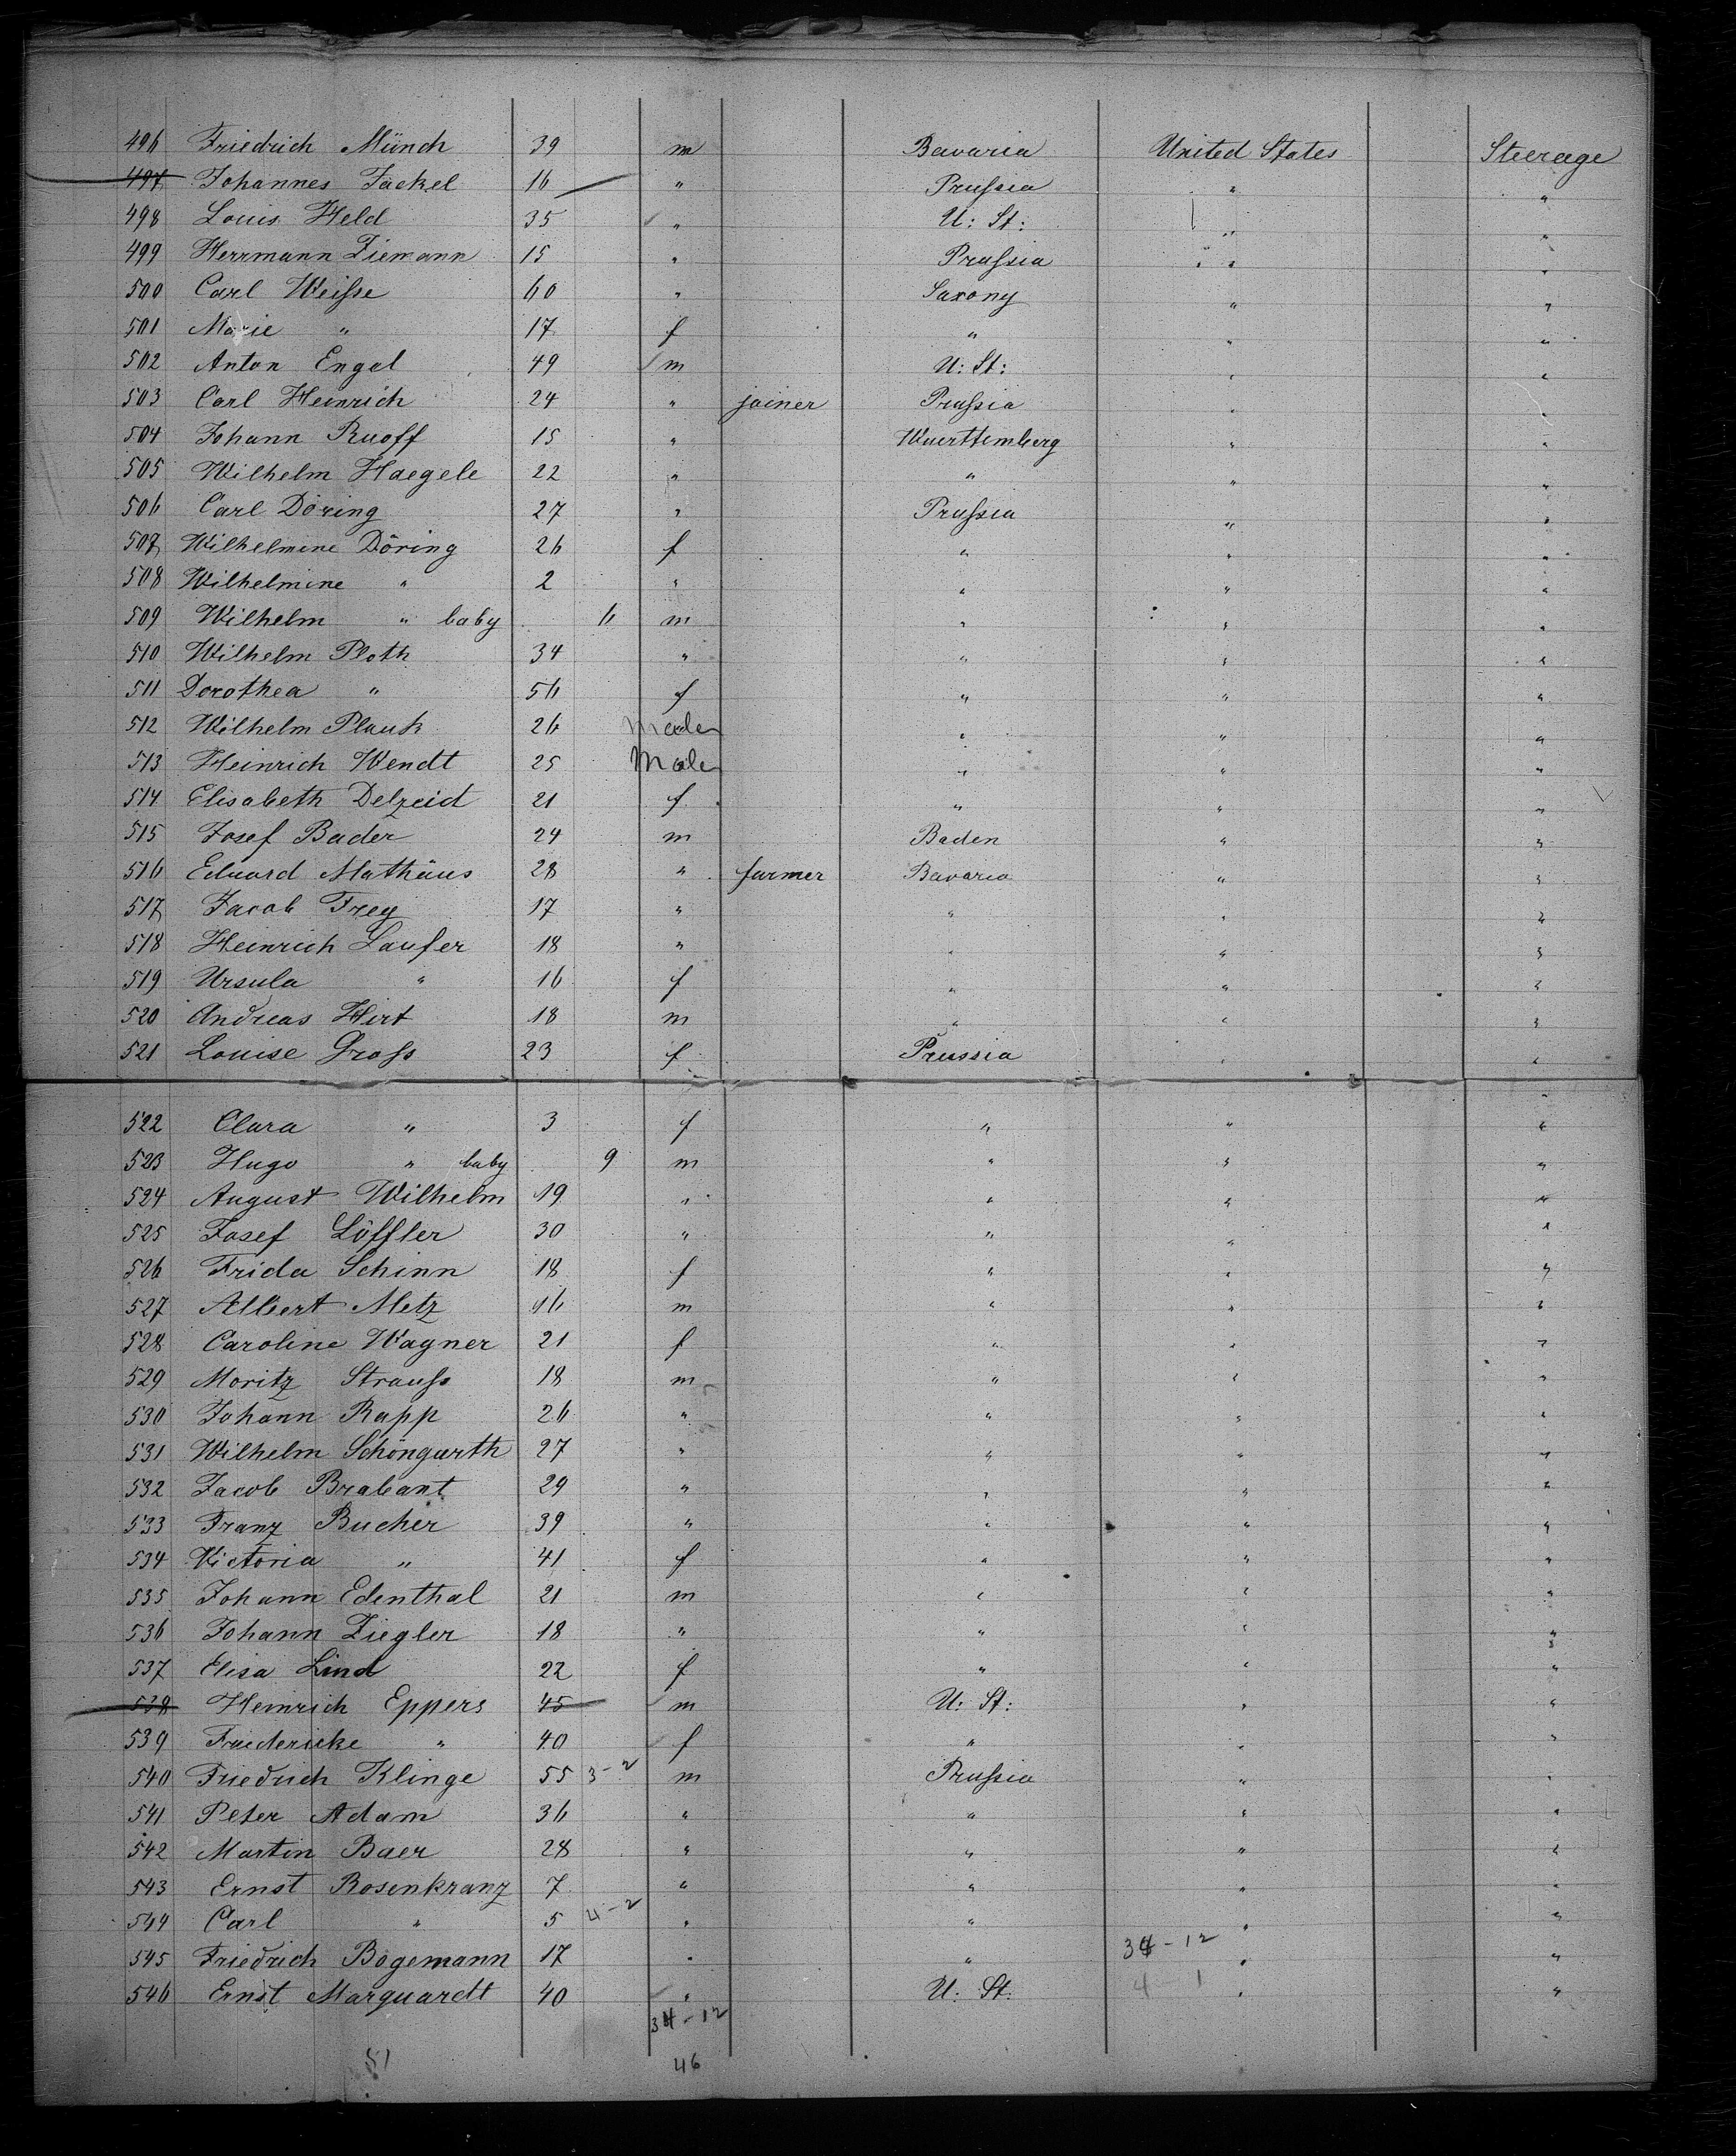 496 Friedrich Münch 39 m Bavaria United States Steerage
497 Johannes Jackel 16 " Prussia " "
498 Louis Held 35 " U: St: " "
499 Herrmann Ziemann 15 " Prussia " "
500 Carl Weisse 60 " Saxony " "
501 Marie " 17 f " " "
502 Anton Engel 49 m U: St: " "
503 Carl Heinrich 24 " joiner Prussia " "
504 Johann Ruoff 15 " Wuerttemberg " "
505 Wilhelm Haegele 22 " " " "
506 Carl Döring 27 " Prussia " "
507 Wilhelmine Döring 26 f " " "
508 Wilhelmine " 2 " " " "
509 Wilhelm " baby 6 m " " "
510 Wilhelm Ploth 34 " " " "
511 Dorothea " 56 f " " "
512 Wilhelm Plauk 26 Male " " "
513 Heinrich Wendt 25 Male " " "
514 Elisabeth Delzeid 21 f " " "
515 Josef Bader 24 m Baden " "
516 Eduard Mathäus 28 " farmer Bavaria " "
517 Jacob Frey 17 " " " "
518 Heinrich Laufer 18 " " " "
519 Ursula " 16 f " " "
520 Andreas Hirt 18 m " " "
521 Louise Gross 23 f Prussia " "
522 Clara " 3 f " " "
523 Hugo " baby 9 m " " "
524 August Wilhelm 19 " " " "
525 Josef Löffler 30 " " " "
526 Frida Schinn 18 f " " "
527 Albert Metz 16 m " " "
528 Caroline Wagner 21 f " " "
529 Moritz Strauss 18 m " " "
530 Johann Rapp 26 " " " "
531 Wilhelm Schöngarth 27 " " " "
532 Jacob Brabant 29 " " " "
533 Franz Bucher 39 " " " "
534 Victoria " 41 f " " "
535 Johann Edenthal 21 m " " "
536 Johann Ziegler 18 " " " "
537 Elisa Lind 22 f " " "
538 Heinrich Eppers 45 m U: St: " "
539 Friedericke " 40 f " " "
540 Friedrich Klinge 55 3-2 m Prussia " "
541 Peter Adam 36 " " " "
542 Martin Baer 28 " " " "
543 Ernst Rosenkranz 7 " " " "
544 Carl " 5 4-2 " " " "
545 Friedrich Bogemann 17 " " 34-12 " "
546 Ernst Marquardt 40 " U: St: 4 1 " "
34-12
51 46